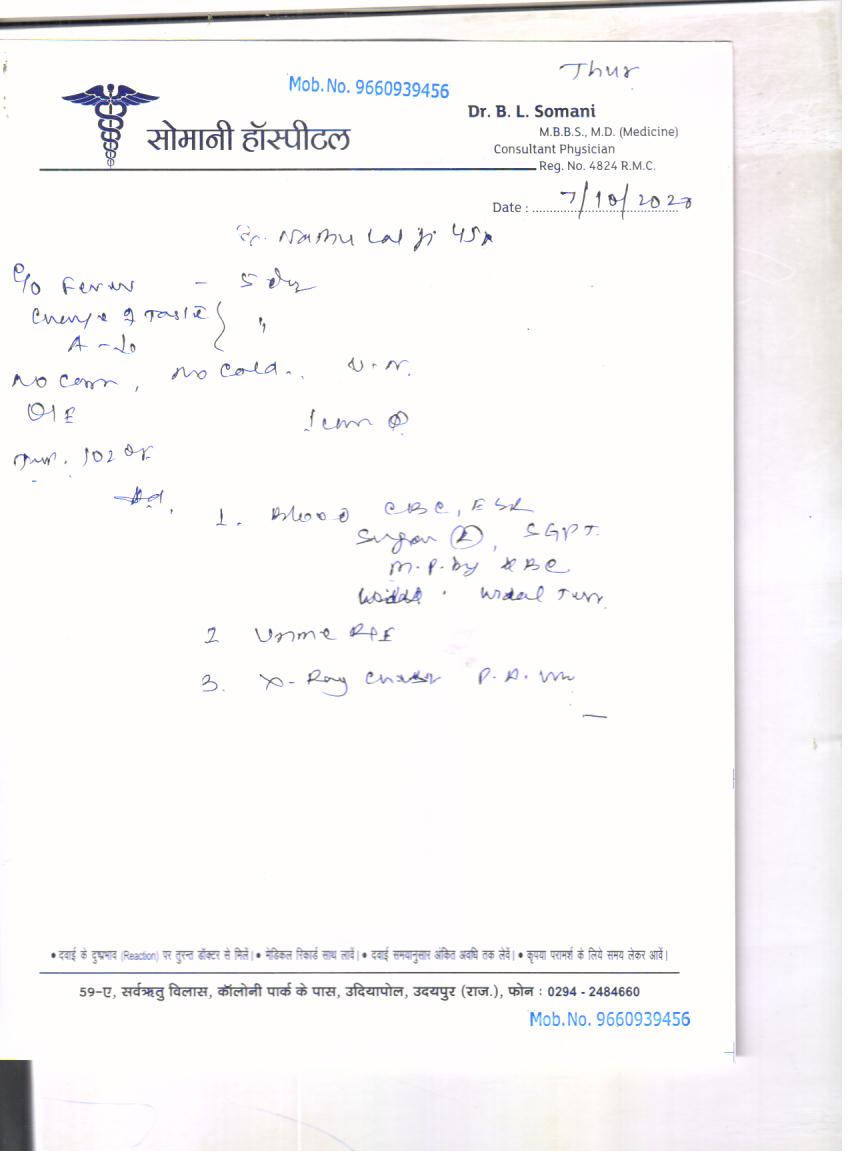 Thur
Mob.No. 9660939456
सोमानी हॉस्पीटल
Dr. B. L. Somani
M.B.B.S., M.D. (Medicine)
Consultant Physician
Reg. No. 4824 R.M.C.
Date : 7/10/2020
Nathu Lal Ji 45
C/o Fever - 5 day
Change of Taste "
No Cold.
O/E
102
Ad.
1. Blood CBC, ESR
Sugar R, SGPT.
M.P. by QBC
Widal Test
2 Urine R/E
3. X-Ray Chest P.A. View
• दवाई के दुष्प्रभाव (Reaction) पर तुरन्त डॉक्टर से मिलें। • मेडिकल रिकार्ड साथ लावें। • दवाई समयानुसार अंकित अवधि तक लेवें। • कृपया परामर्श के लिये समय लेकर आवें।
59-ए, सर्वऋतु विलास, कॉलोनी पार्क के पास, उदियापोल, उदयपुर (राज.), फोन : 0294 - 2484660
Mob.No. 9660939456